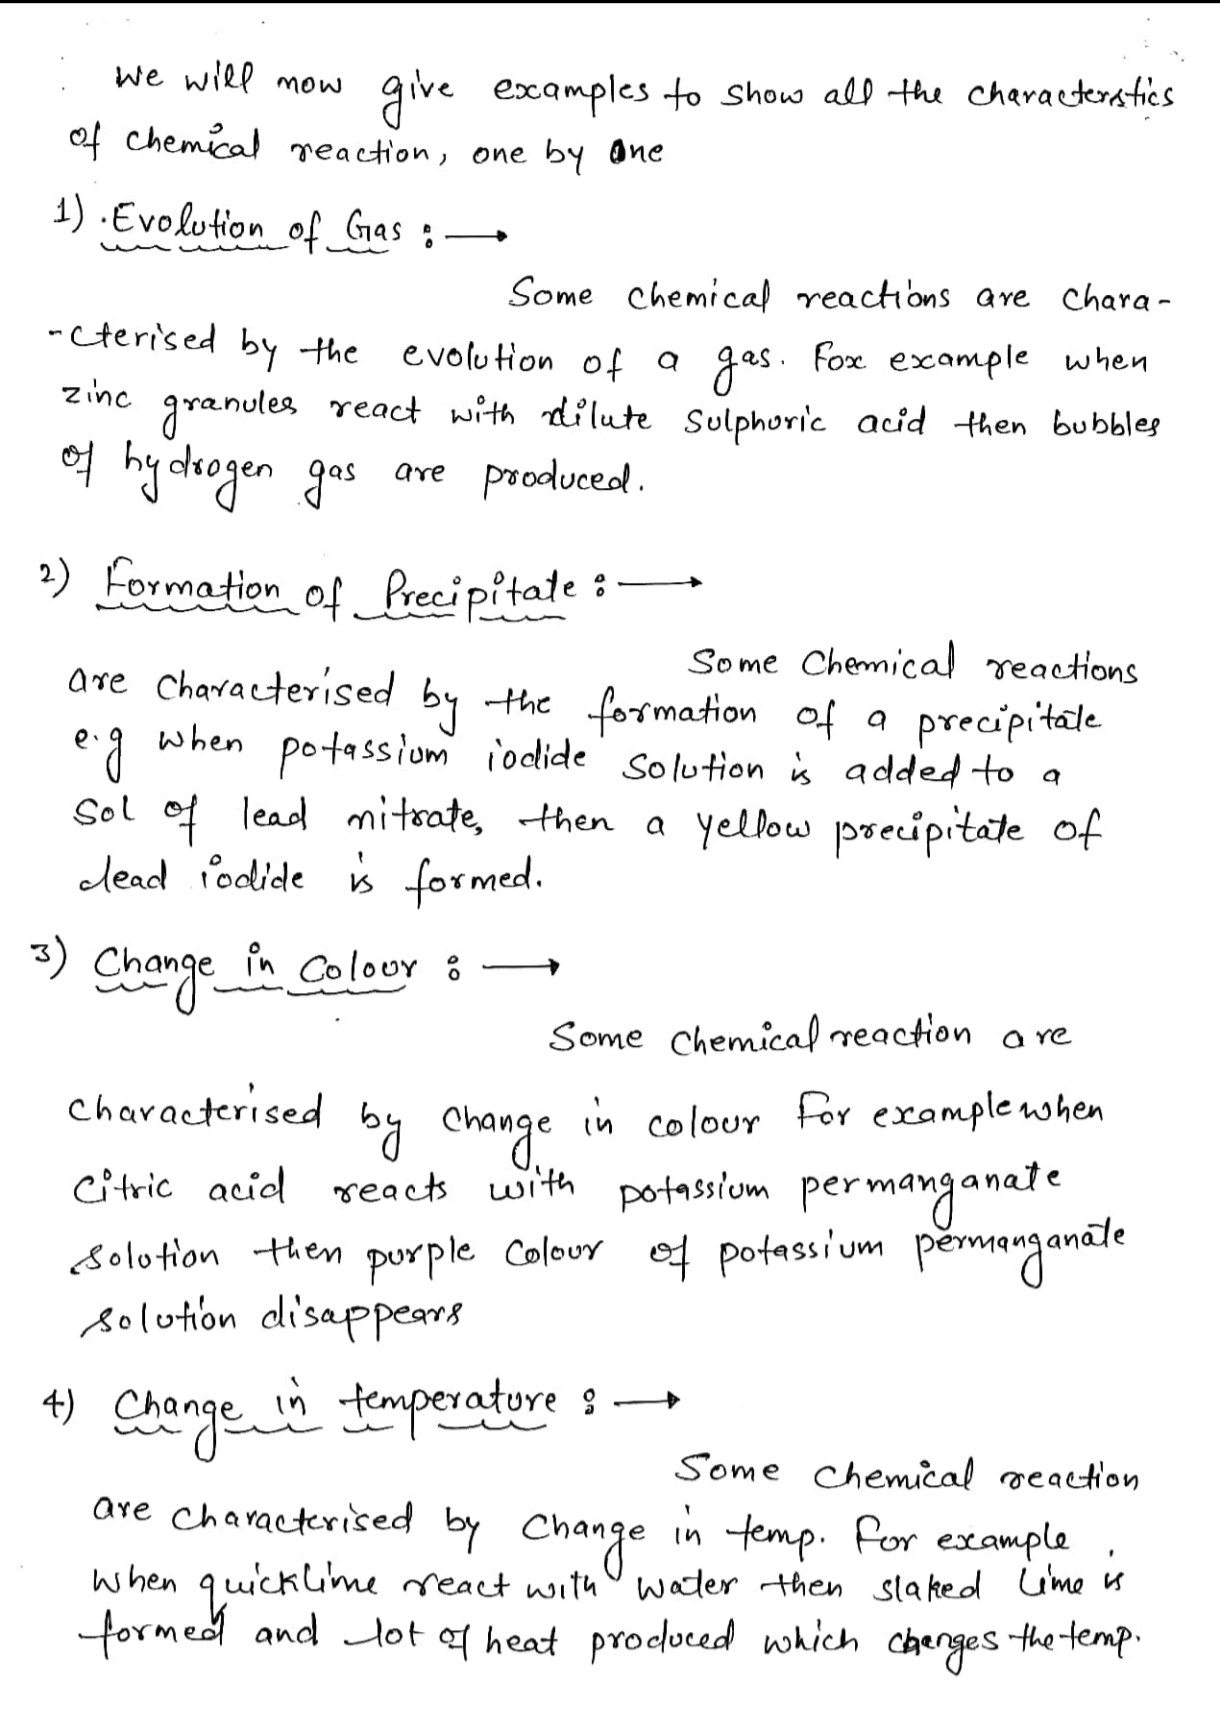 We will now give examples to show all the characterstics
of chemical reaction, one by one
1) Evolution of Gas :→
Some chemical reactions are chara-
-cterised by the evolution of a gas. For example when
zinc granules react with dilute sulphuric acid then bubbles
of hydrogen gas are produced.
2) Formation of Precipitate :→
Some Chemical reactions
are characterised by the formation of a precipitate
e.g when potassium iodide solution is added to a
sol of lead nitrate, then a yellow precipitate of
lead iodide is formed.
3) Change in Colour :→
Some chemical reaction are
characterised by change in colour for example when
citric acid reacts with potassium permanganate
solution then purple colour of potassium permanganate
solution disappears
4) Change in temperature :→
Some chemical reaction
are characterised by change in temp. for example,
when quicklime react with water then slaked lime is
formed and lot of heat produced which changes the temp.